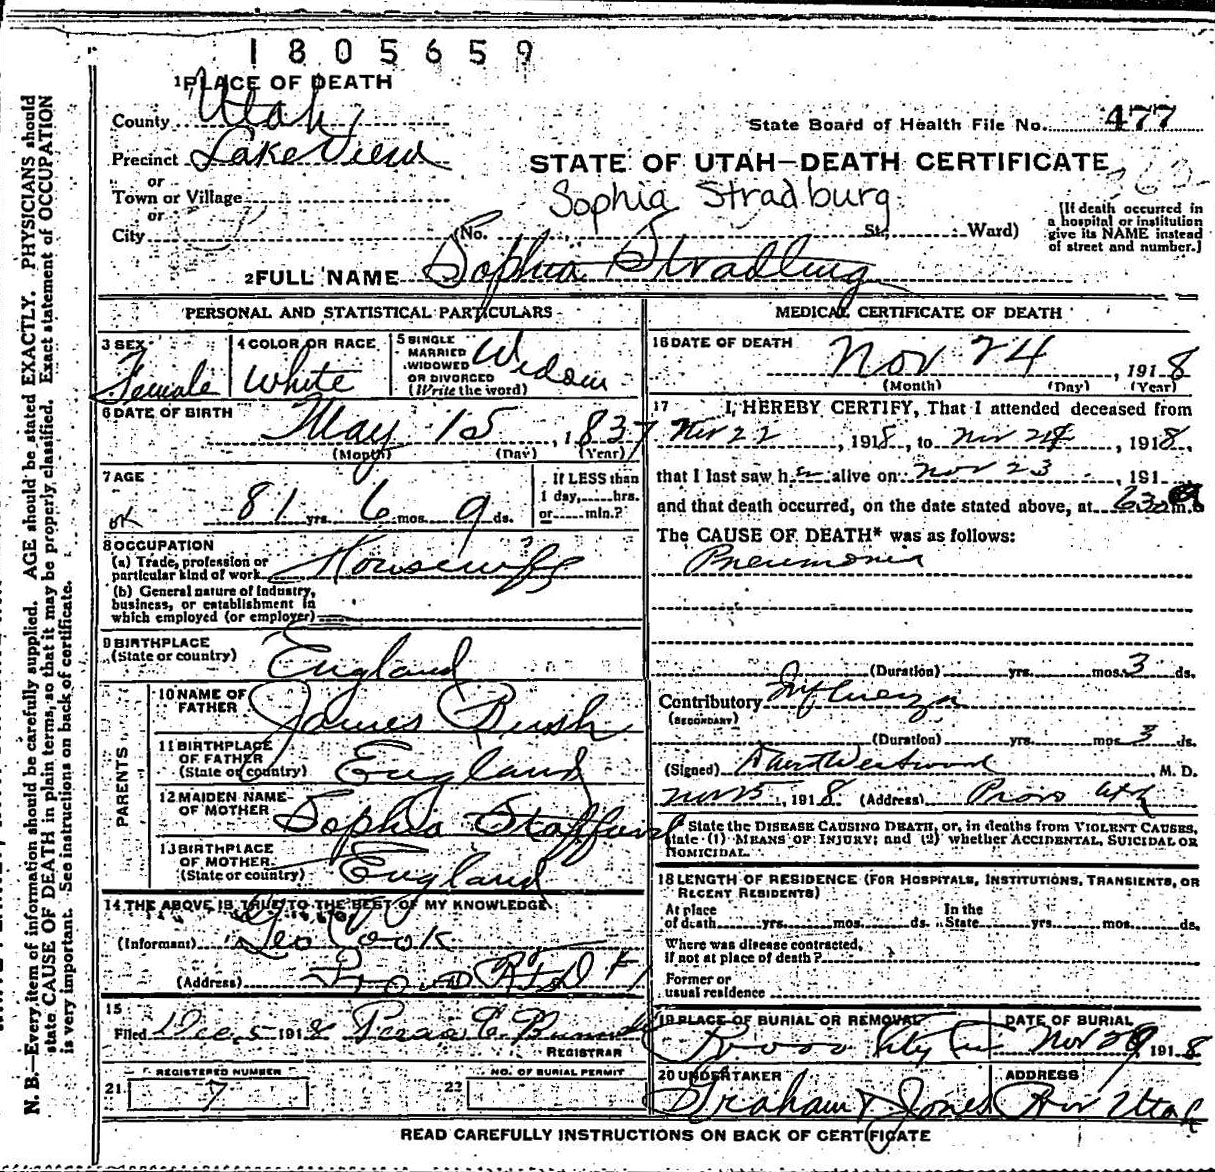 1805659
1 PLACE OF DEATH
County Utah
State Board of Health File No. 477
Precinct Lake View
STATE OF UTAH—DEATH CERTIFICATE
or
Town or Village
Sophia Stradburg
or
City (No. St., Ward)
[If death occurred in
a hospital or institution
give its NAME instead
of street and number.]
2 FULL NAME Sophia Stradling
PERSONAL AND STATISTICAL PARTICULARS
3 SEX
Female
4 COLOR OR RACE
White
5 SINGLE
MARRIED
WIDOWED
OR DIVORCED
(Write the word)
Widow
6 DATE OF BIRTH
May 15, 1837
(Month) (Day) (Year)
7 AGE
ok 81 yrs. 6 mos. 9 ds.
If LESS than
1 day, hrs.
or min.?
8 OCCUPATION
(a) Trade, profession or
particular kind of work Housewife
(b) General nature of Industry,
business, or establishment in
which employed (or employer)
9 BIRTHPLACE
(State or country) England
PARENTS
10 NAME OF
FATHER James Bush
11 BIRTHPLACE
OF FATHER
(State or country) England
12 MAIDEN NAME
OF MOTHER Sophia Stafford
13 BIRTHPLACE
OF MOTHER
(State or country) England
14 THE ABOVE IS TRUE TO THE BEST OF MY KNOWLEDGE
(Informant) Geo Cook
(Address) Provo
15
Filed Dec. 5 1918
REGISTRAR
21 REGISTERED NUMBER
7
22 NO. OF BURIAL PERMIT
MEDICAL CERTIFICATE OF DEATH
16 DATE OF DEATH
Nov 24, 1918
(Month) (Day) (Year)
17 I, HEREBY CERTIFY, That I attended deceased from
Nov 22, 1918, to Nov 24, 1918,
that I last saw her alive on Nov 23, 191
and that death occurred, on the date stated above, at m.
The CAUSE OF DEATH* was as follows:
Pneumonia
(Duration) yrs. mos. 3 ds.
Contributory Influenza
(SECONDARY)
(Duration) yrs. mos. 3 ds.
(Signed) Westwood M. D.
Nov 25, 1918 (Address) Provo Utah
* State the DISEASE CAUSING DEATH, or, in deaths from VIOLENT CAUSES,
state (1) MEANS OF INJURY; and (2) whether ACCIDENTAL, SUICIDAL OR
HOMICIDAL.
18 LENGTH OF RESIDENCE (FOR HOSPITALS, INSTITUTIONS, TRANSIENTS, OR
RECENT RESIDENTS)
At place
of death yrs. mos. ds.
In the
State yrs. mos. ds.
Where was disease contracted,
if not at place of death?
Former or
usual residence
19 PLACE OF BURIAL OR REMOVAL
Provo City Cem
DATE OF BURIAL
Nov 29 1918
20 UNDERTAKER
Graham & Jones
ADDRESS
Prov Utah
READ CAREFULLY INSTRUCTIONS ON BACK OF CERTIFICATE
N. B.—Every item of information should be carefully supplied. AGE should be stated EXACTLY. PHYSICIANS should
state CAUSE OF DEATH in plain terms, so that it may be properly classified. Exact statement of OCCUPATION
is very important. See instructions on back of certificate.